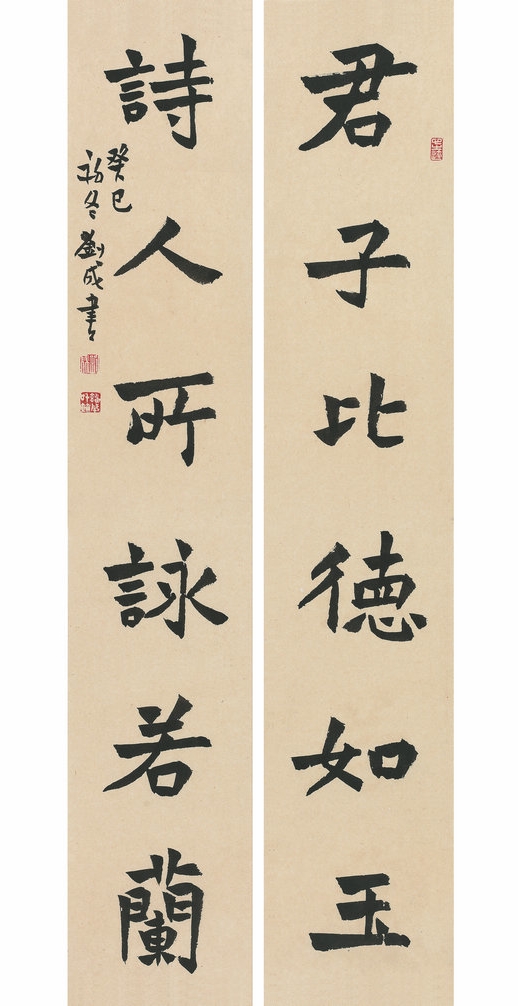 君子比德如玉
詩人所詠若蘭
癸巳
初冬劉成書